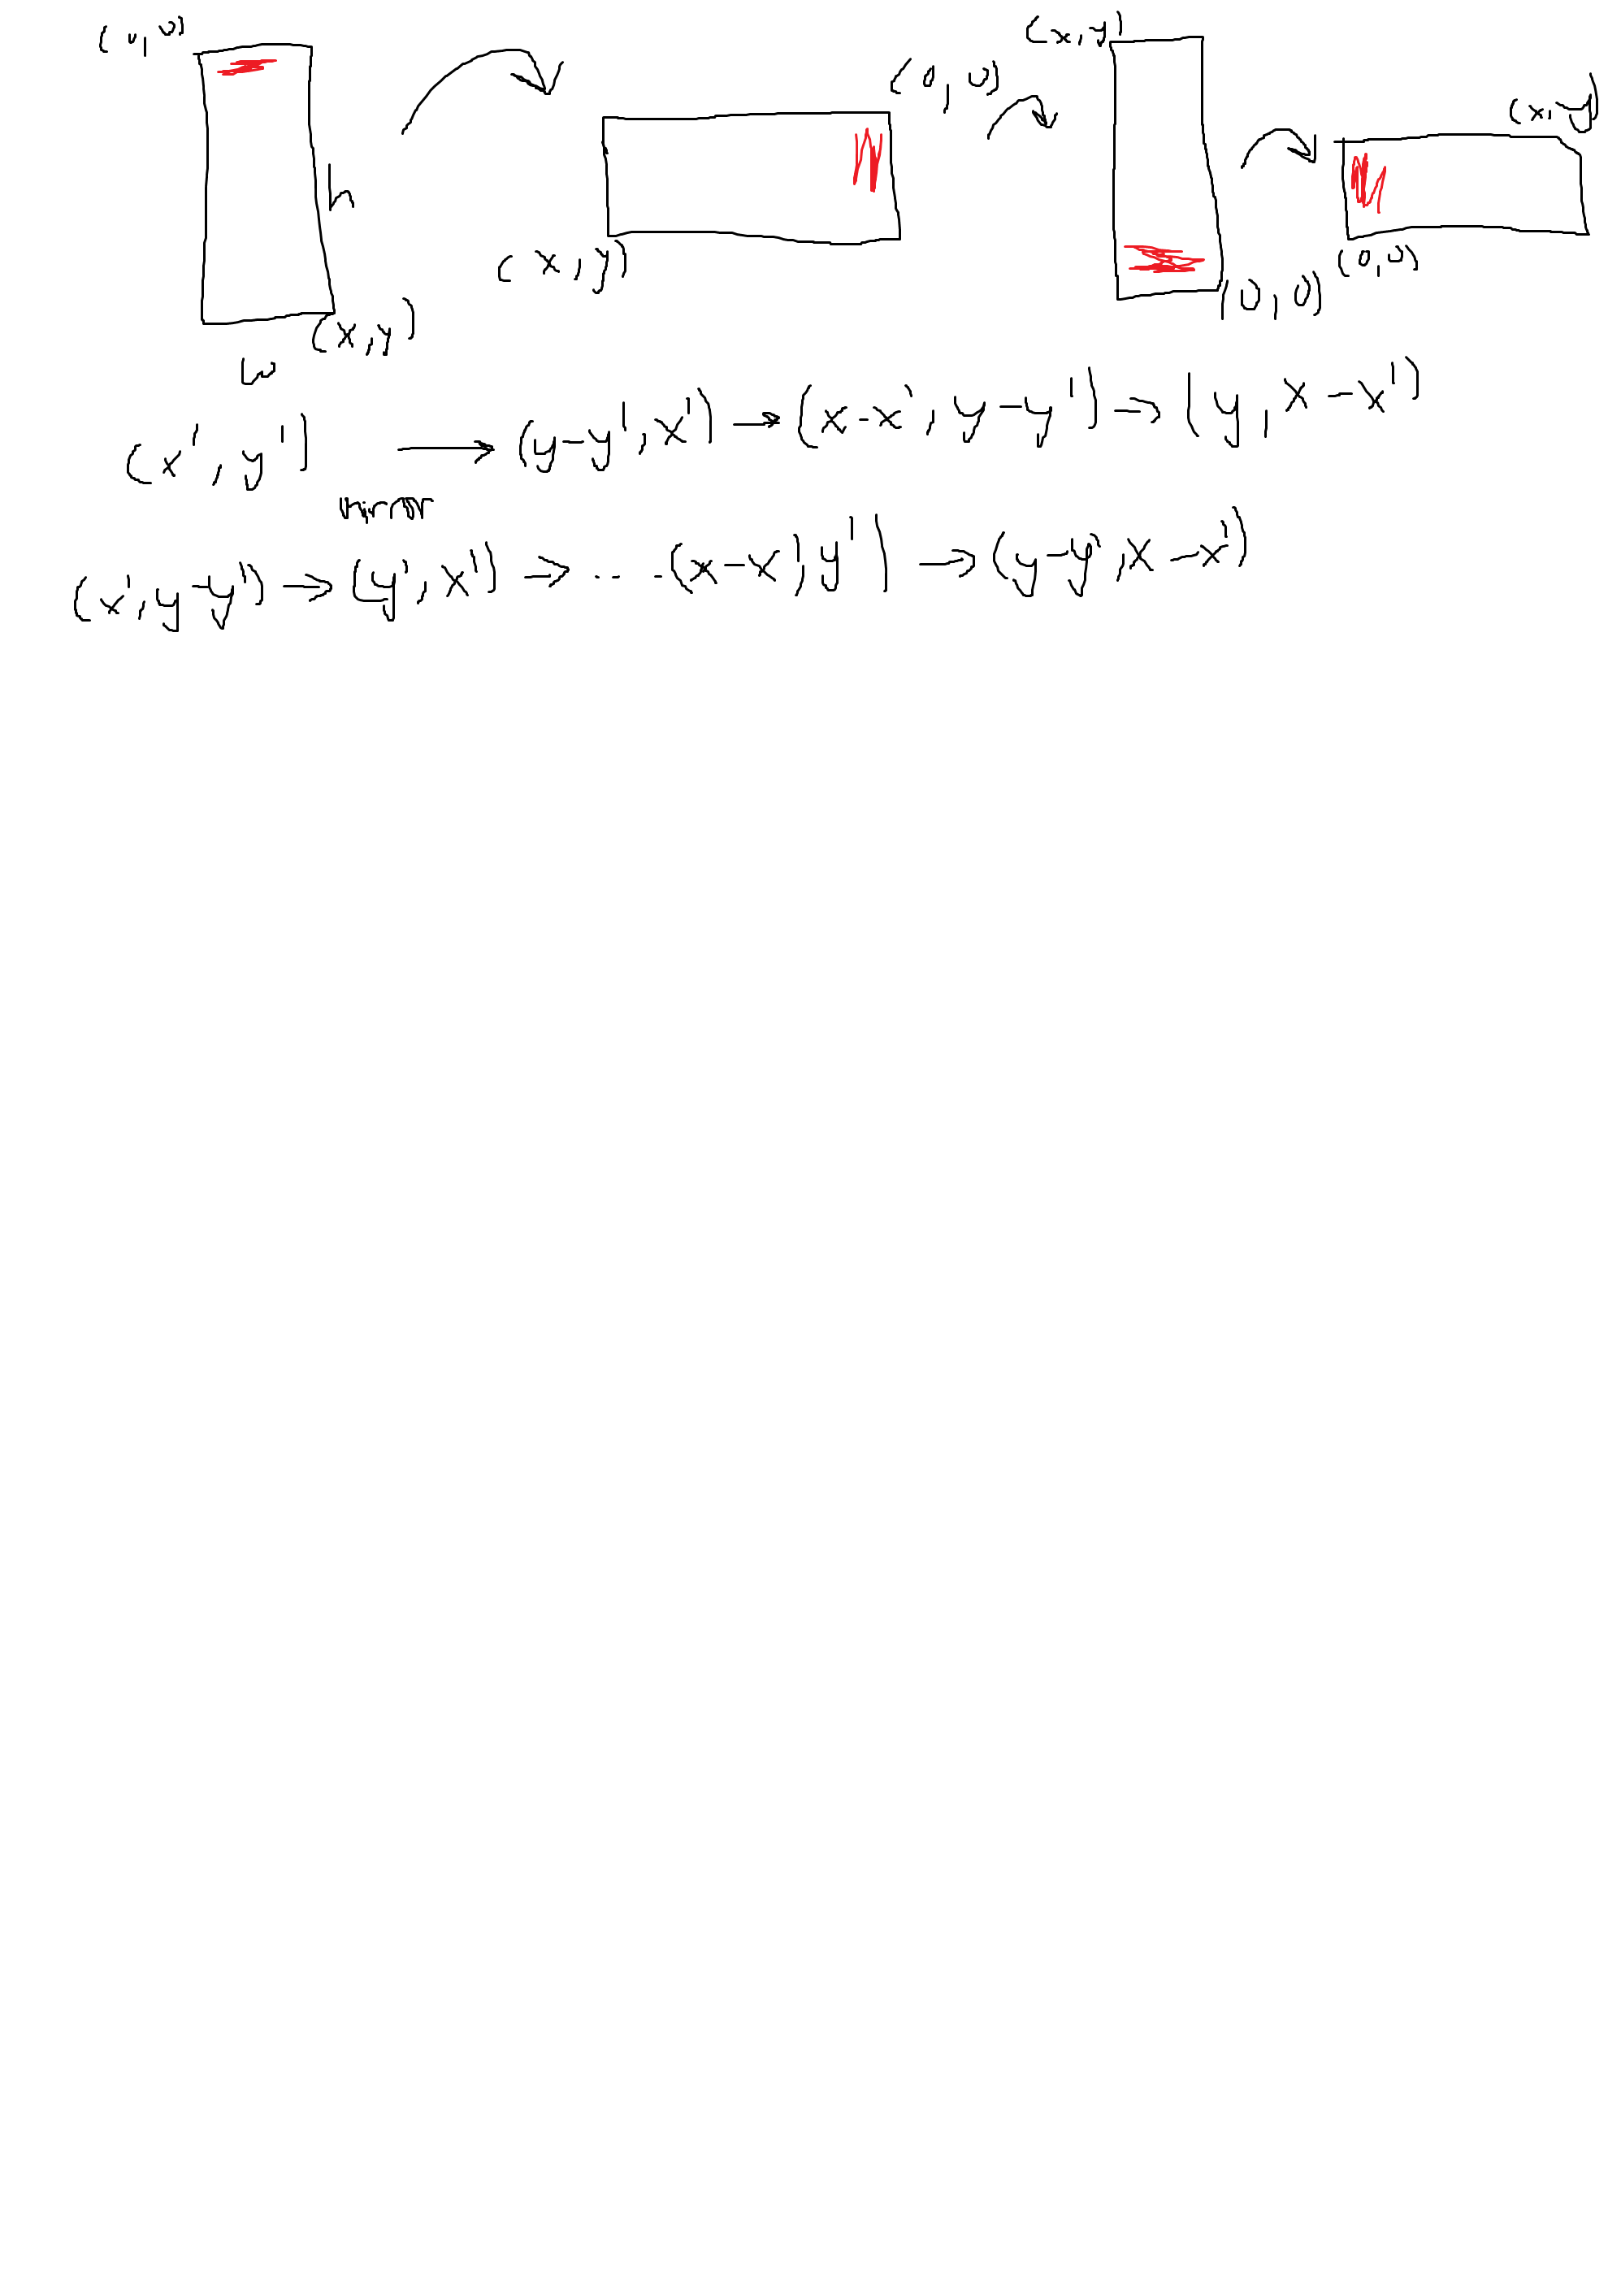 (0,0)
h
w
(x,y)
(0,0)
(x,y)
(x,y)
(0,0)
(x,y)
(0,0)
(x',y') → (y-y',x') → (x-x',y-y') → (y,x-x')
mirror
(x',y-y') → (y',x') → ... (x-x',y') → (y-y',x-x')